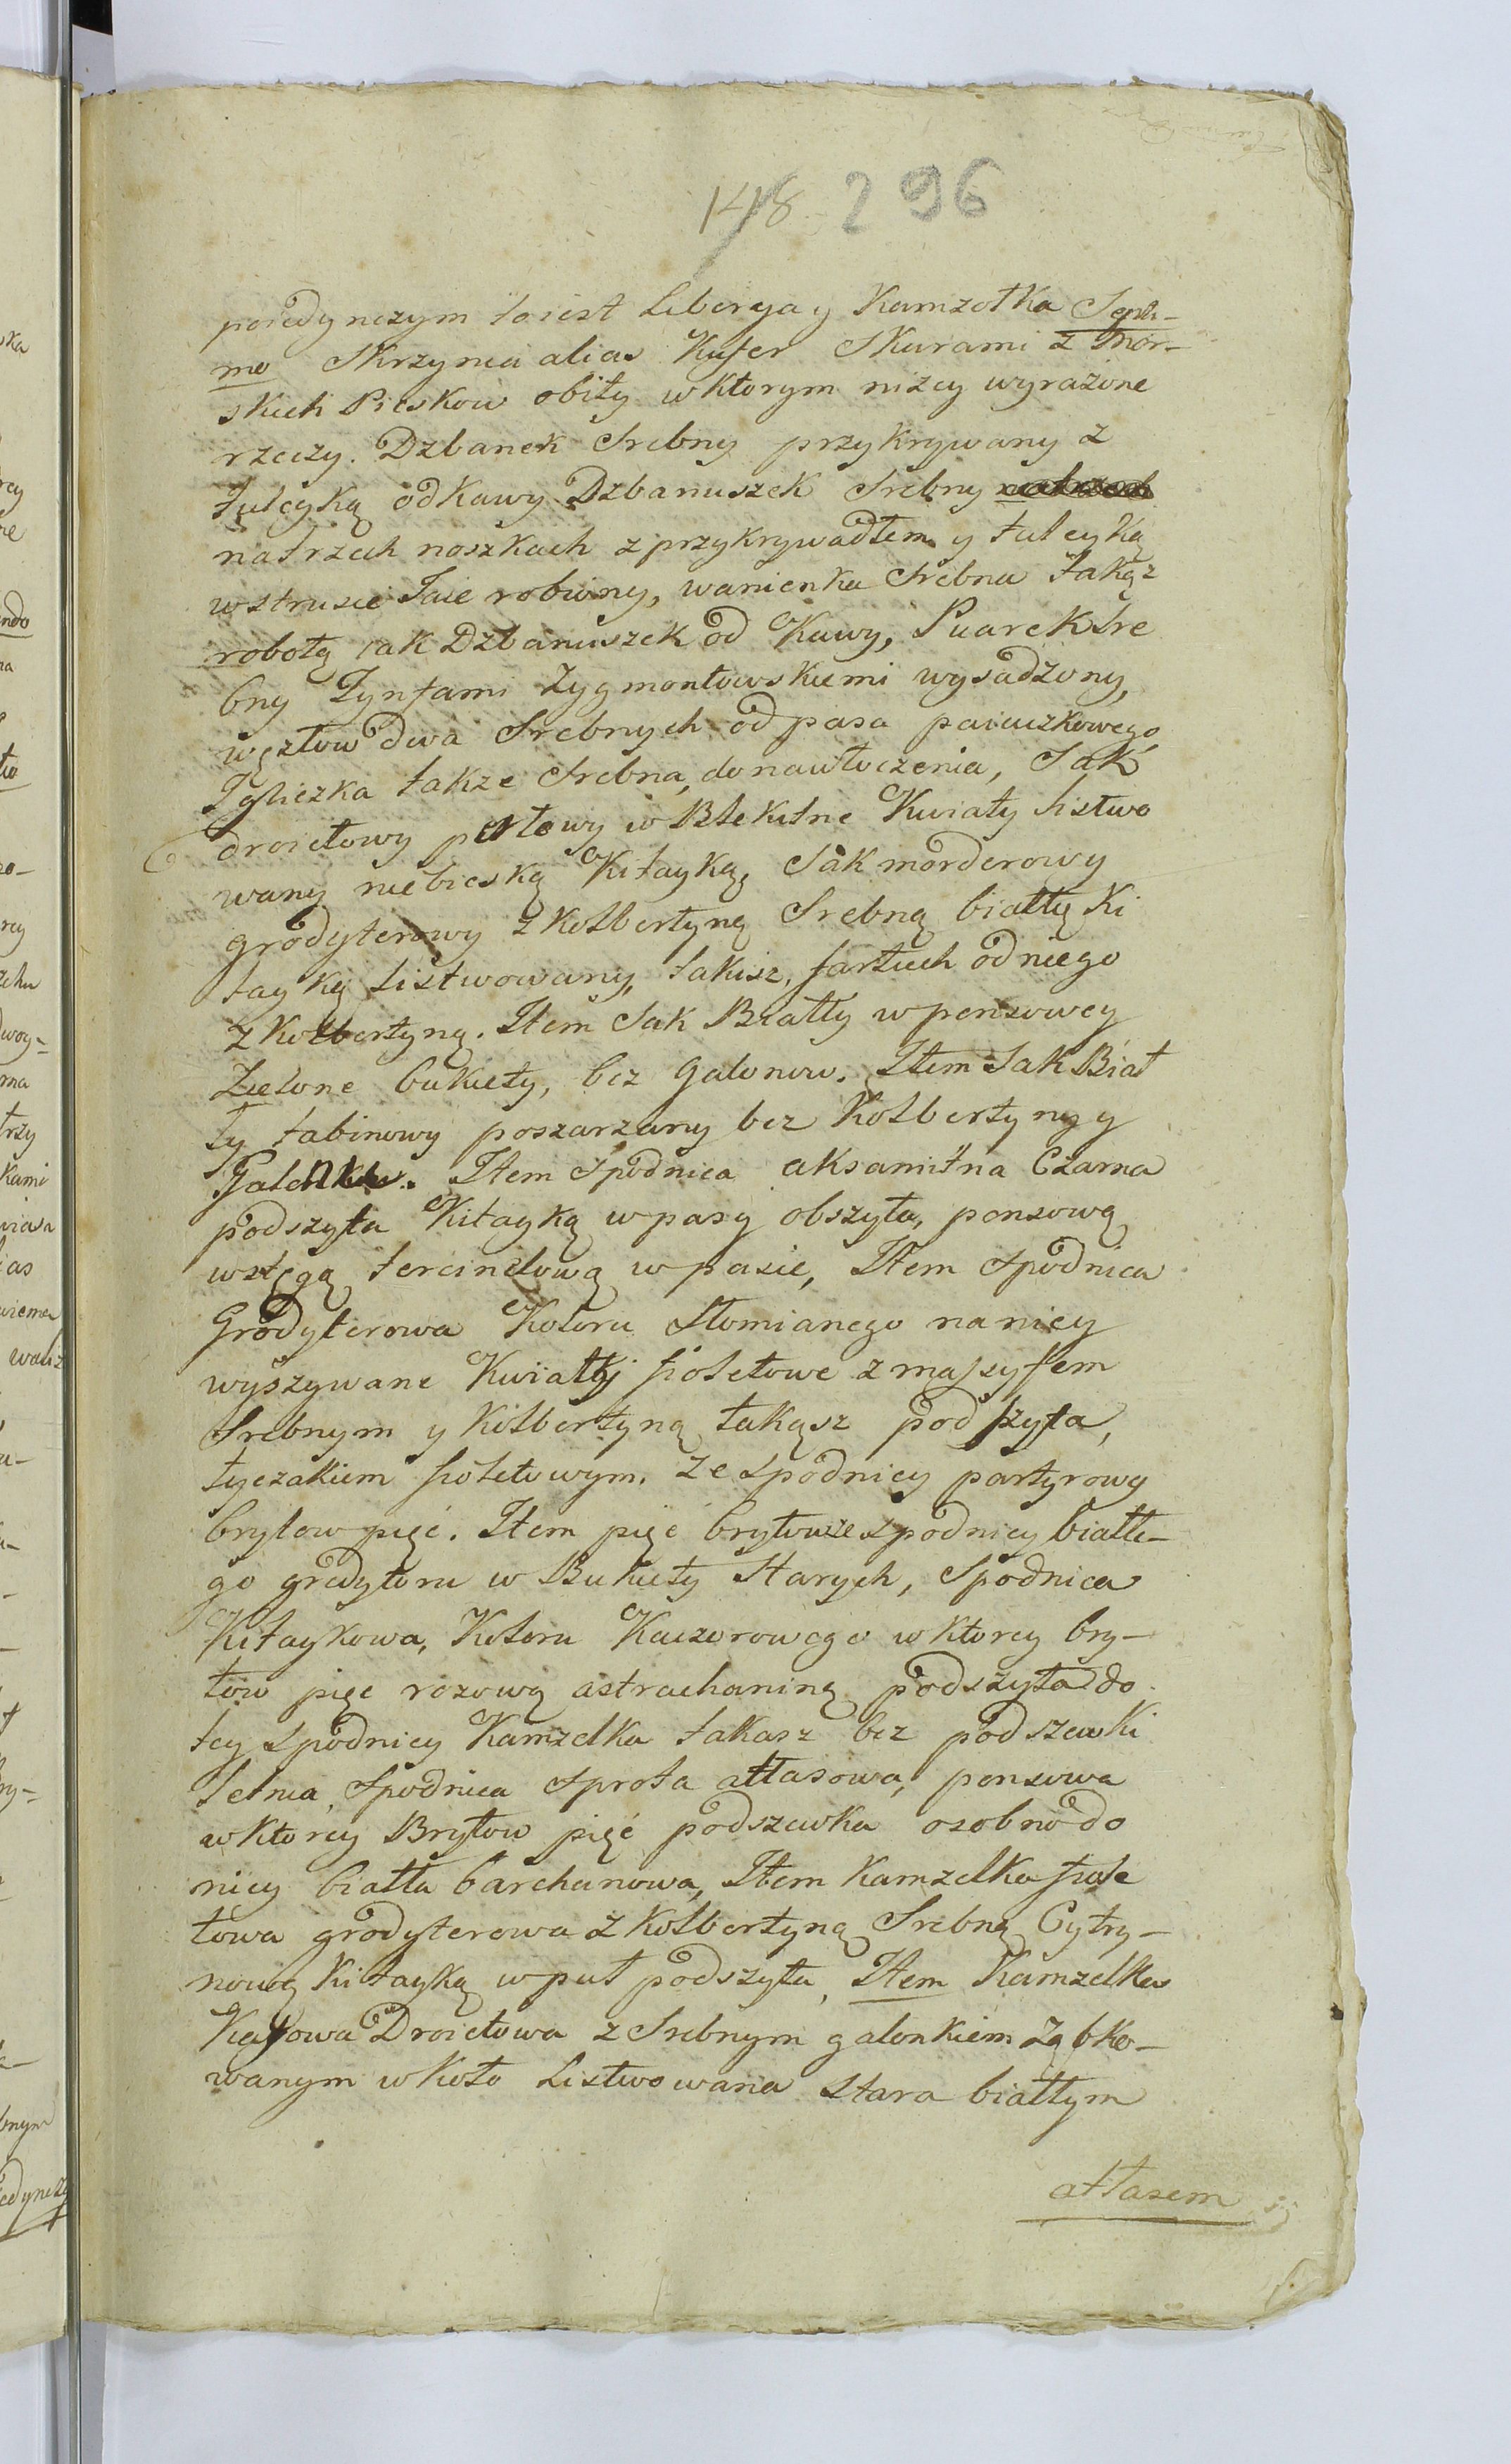 148 296
poiedynczym to iest Liberya y Kamzolka Septi-
mo Skrzynia alias Kufer Skurami z Mor-
skich Pieskow obity w ktorym nizey wyrażone
rzeczy. Dzbanek Srebny przykrywany z
tuleyką od Kawy. Dzbanuszek Srebny
na trzech noszkach z przykrywadłem y tuleyką
w strusie Jaie robiony, wanienka Srebna takąz
robotą iak Dzbanuszek od Kawy, Puarek Sre
bny Tynfami Zygmontowskiemi wysadzony,
węzłow dwa Srebnych od pasa paiuczkowego,
Igliczka takze Srebna, do nawłoczenia, Sak
droietowy perłowy w Błekitne Kwiaty listwo
wany niebieską Kitayką, Sak morderowy
grodyterowy z Kolbertyną Srebną białłą Ki
tayką listwowany, takisz, fartuch od niego
z Kolbertyną. Item Sak Białły w pensowey
Zielone bukiety, bez Galonow. Item Sak Biał
ły tabinowy poszarzany bez Kolbertyny y
Galonkow. Item Spodnica aksamitna Czarna
podszyta Kitayką w pasy obszyta, pensową
wstęgą tercinelową w pasie, Item Spodnica
Grodyterowa Koloru Słomianego na niey
wyszywane Kwiatky fioletowe z massyfem
Srebnym y Kolbertyną takąsz podszyta,
tyczakiem fioletowym. Ze Spodnicy partyrowy
brytow pięć. Item pięć brytow ze Spodnicy białłe-
go grodytoru w Bukiety Starych, Spodnica
Kitaykowa, Koloru Kaczorowego w ktorey bry-
tow pięć rozową astrachaniną podszyta do
tey Spodnicy Kamzelka takasz bez podszewki
letnia, Spodnica Sprota attasowa, pensowa
w ktorey Brytow pięć podszewka osobno do
niey białła barchanowa, Item Kamzelka fiole
towa grodyterowa z Kolbertyną Srebną Cytry-
nową Kitayką w puł podszyta, Item Kamzelka
Kafowa Droietowa z Srebnym galonkiem Ząbko-
wanym wkoło Listwowana Stara białłym
attasem